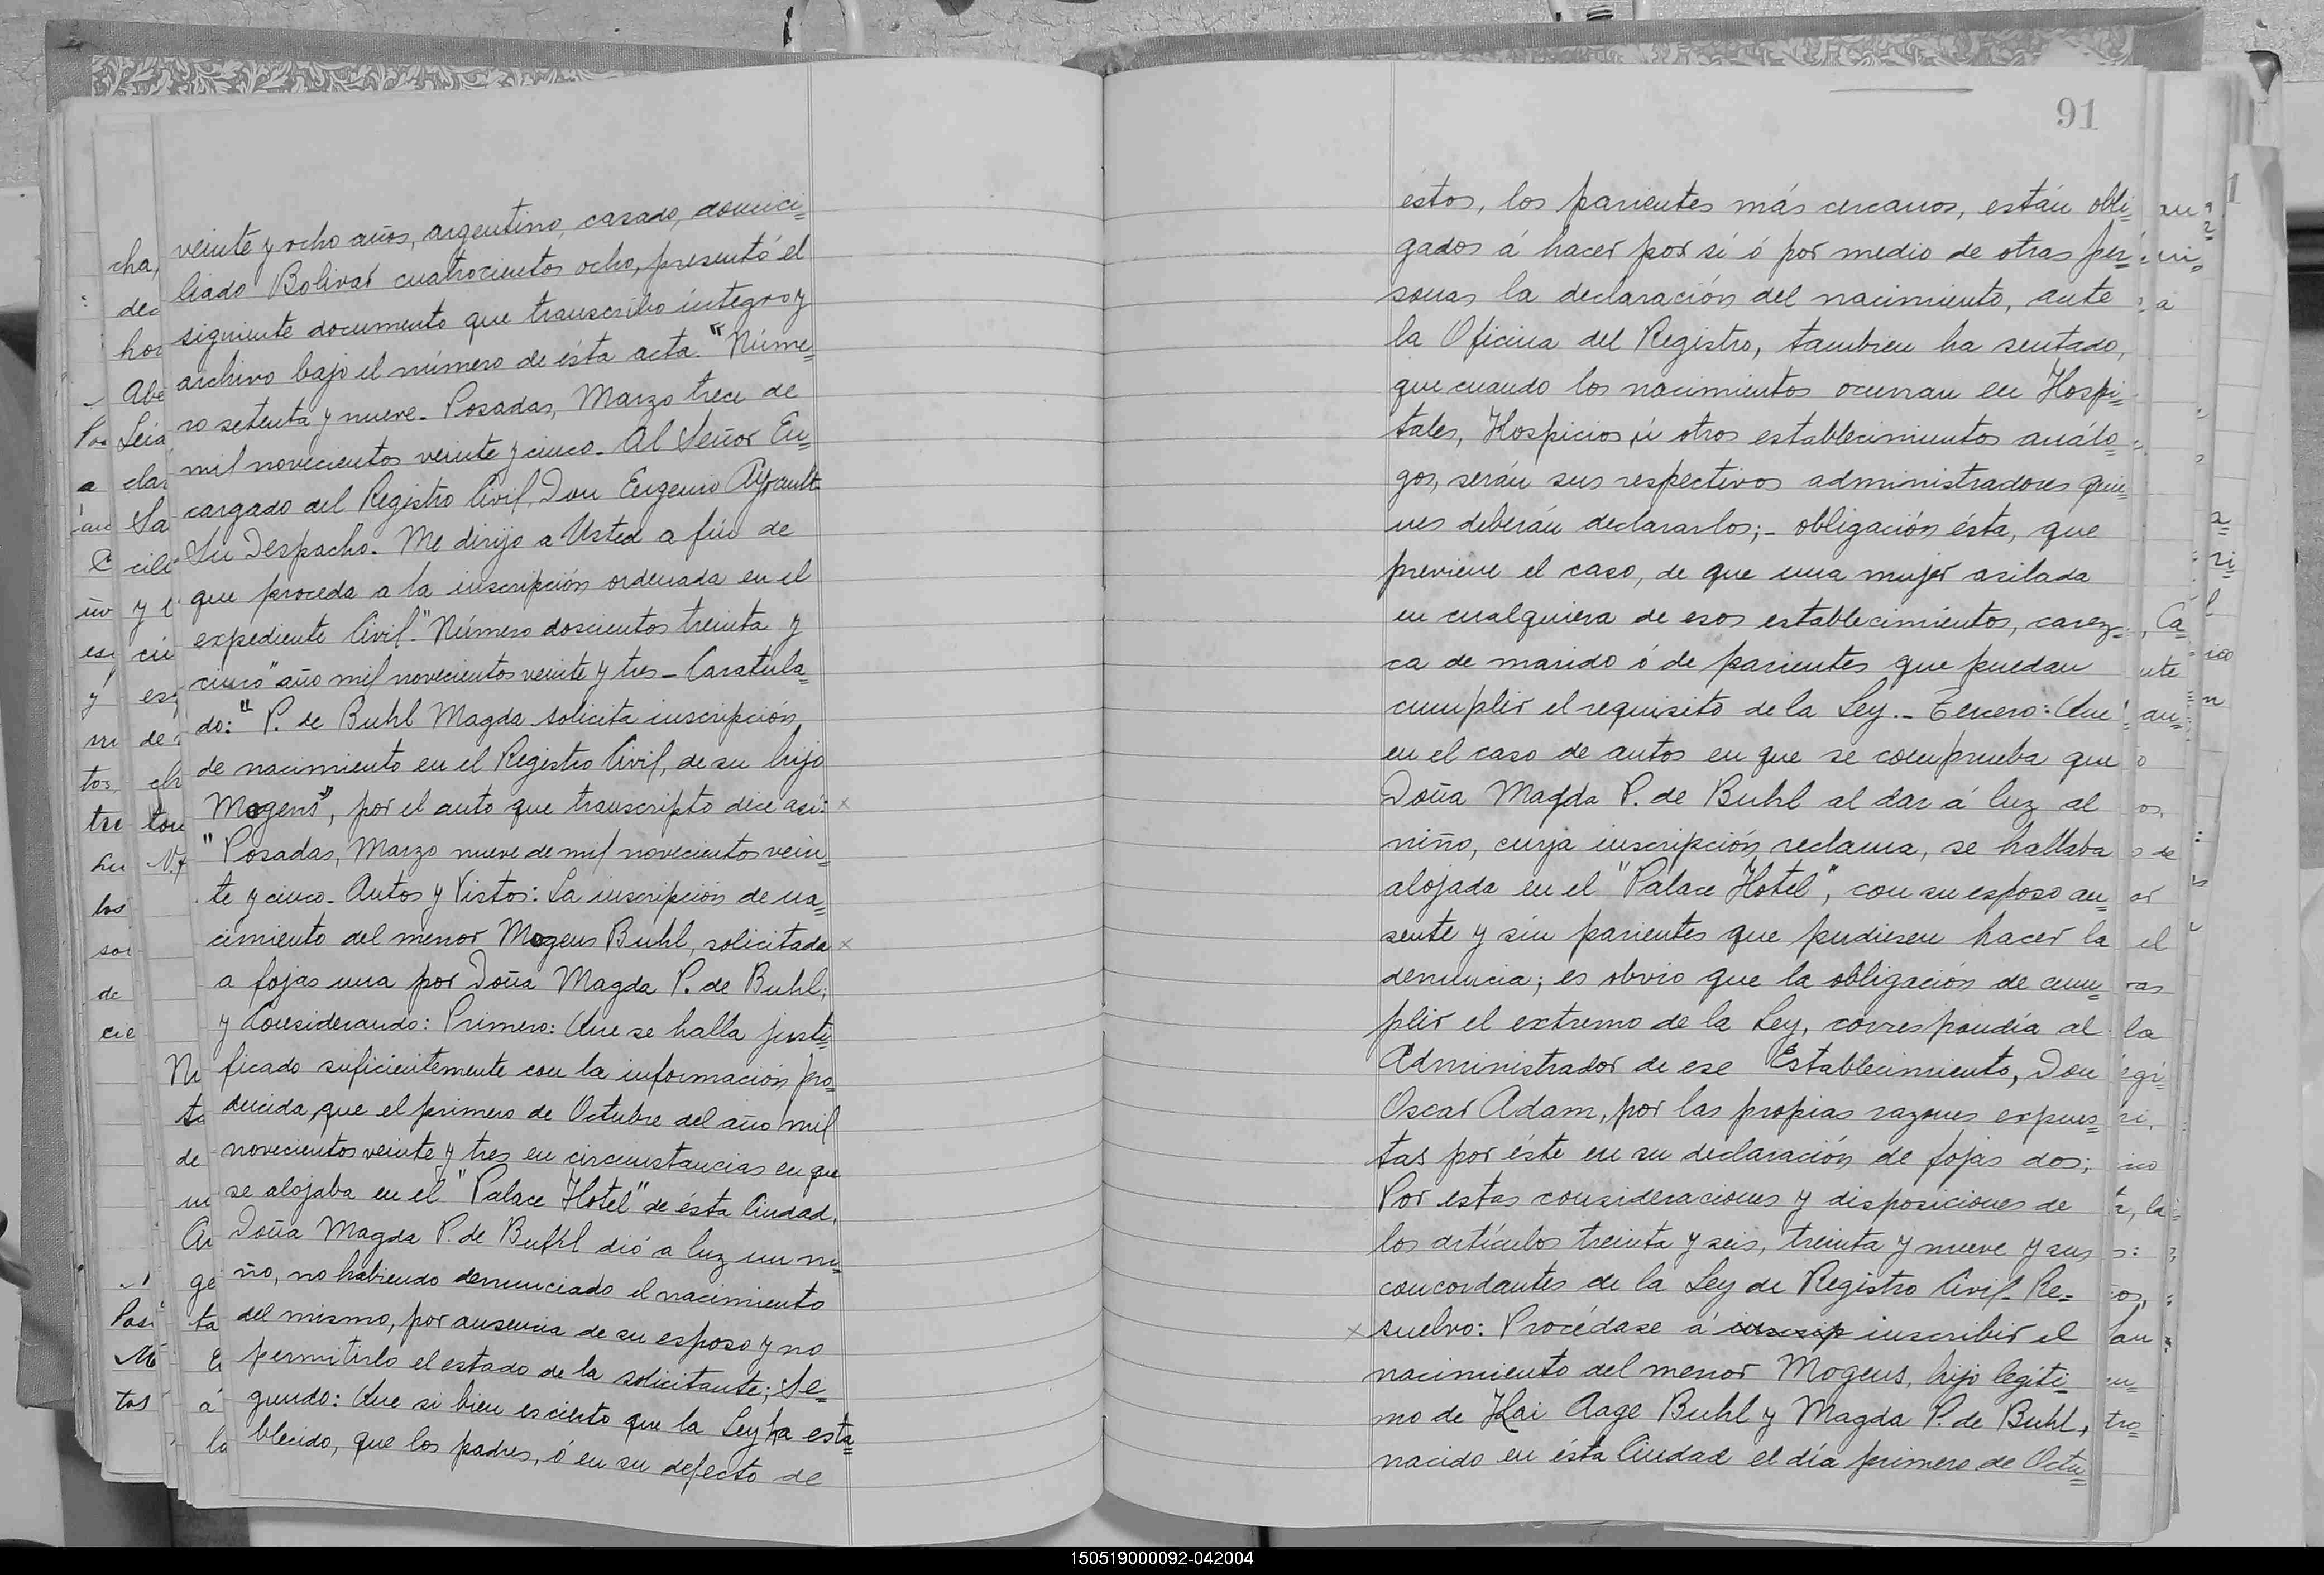 veinte y ocho años, argentino, casado, domici=
liado Bolivar cuatrocientos ocho, presentó el
siguiente documento que transcribo íntegro y
archivo bajo el número de ésta acta. "Núme=
ro setenta y nueve. Posadas, Marzo trece de
mil novecientos veinte y cinco. Al Señor En=
cargado del Registro Civil, Don Eugenio
Su Despacho. Me dirijo a Usted a fin de
que proceda a la inscripción ordenada en el
expediente Civil. "Número doscientos treinta y
cinco" año mil novecientos veinte y tres - Caratula=
do: "P. de Buhl Magda solicita inscripción
de nacimiento en el Registro Civil, de su hijo
Mogens", por el auto que transcripto dice así: x
"Posadas, Marzo nueve de mil novecientos vein=
te y cinco. Autos y Vistos: La inscripción de na=
cimiento del menor Mogens Buhl, solicitada x
a fojas una por Doña Magda P. de Buhl;
y Considerando: Primero: Que se halla justi=
ficado suficientemente con la información pro=
ducida, que el primero de Octubre del año mil
novecientos veinte y tres en circunstancias en que
se alojaba en el "Palace Hotel" de ésta Ciudad,
Doña Magda P. de Buhl dió a luz un ni=
ño, no habiendo denunciado el nacimiento
del mismo, por ausencia de su esposo y no
permitirlo el estado de la solicitante; Se=
gundo: Que si bien es cierto que la Ley ha esta=
blecido, que los padres, ó en su defecto de
91
éstos, los parientes más cercanos, están obli=
gados á hacer por sí ó por medio de otras per=
sonas la declaración del nacimiento, ante
la Oficina del Registro, tambien ha sentado,
que cuando los nacimientos ocurran en Hospi=
tales, Hospicios, ú otros establecimientos análo=
gos, serán sus respectivos administradores quie=
nes deberán declararlos; - obligación ésta, que
previene el caso, de que una mujer asilada
en cualquiera de esos establecimientos, carez=
ca de marido ó de parientes que puedan
cumplir el requisito de la Ley. - Tercero: Que
en el caso de autos en que se comprueba que
Doña Magda P. de Buhl al dar á luz al
niño, cuya inscripción reclama, se hallaba
alojada en el "Palace Hotel", con su esposo au=
sente y sin parientes que pudiesen hacer la
denuncia; es obvio que la obligación de cum=
plir el extremo de la Ley, correspondía al
Administrador de ese Establecimiento, Don
Oscar Adam, por las propias razones expues=
tas por éste en su declaración de fojas dos;
Por estas consideraciones y disposiciones de
los artículos treinta y seis, treinta y nueve y sus
concordantes de la Ley de Registro Civil. Re=
x suelvo: Procédase á inscrip inscribir el
nacimiento del menor Mogens, hijo legíti=
mo de Kai Aage Buhl y Magda P. de Buhl,
nacido en ésta Ciudad el día primero de Octu=
150519000092-042004